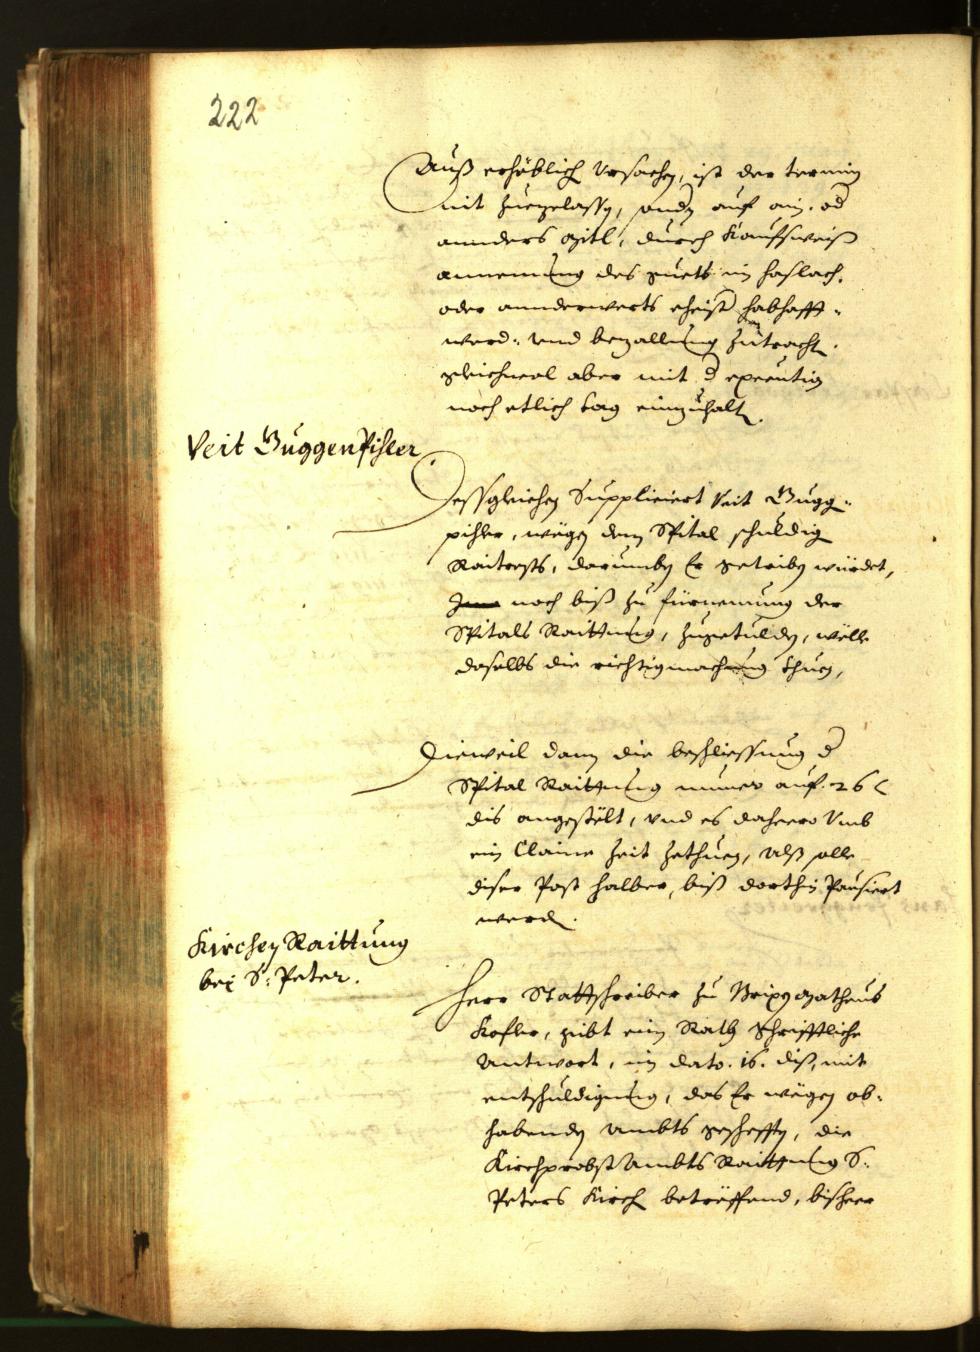 222
Auß erhöblich Vrsachen, ist der termin
nit zuegelassen, sonder auf ain. od
annders Mitl, durch Kaufsweiß
annemung des guets in Haslach,
oder annderwerts eheist habhafft-
werd: und bezallung zutracht.
gleichwol aber mit d execution
noch etlich tag einzuhalt.
Veit Guggenpihler
Dessgleichen Suppliciert Veit Gugg-
pihler, wegen dem Spital schuldig
Raitrests, darumben Er getriben würdet,
noch biß zu fürnemung der
Spitals Raittung, zugetulden, wölle
daselbs die richtigmachung thuen,
Dieweil dann die beschliessung d
Spital Raittung nuner auf 26
dis angestölt, vnd es daheero Vmb
ein Claine Zeit zethuen, Alß solle
diser Post halber, biß dorthin Pausiert
werd.
Kirchen Raittung
bei S: Peter.
Herr Stattschreiber zu Brixen Matheus
Kofler, gibt eim Rath Schrifftliche
Antwort, in dato. 16. diß, mit
entschuldigung, das Er wegen ob-
habenden Ambts gescheffen, die
Kirchprobst Ambts Raittung S:
Peters Kirch betreffend, bisheer